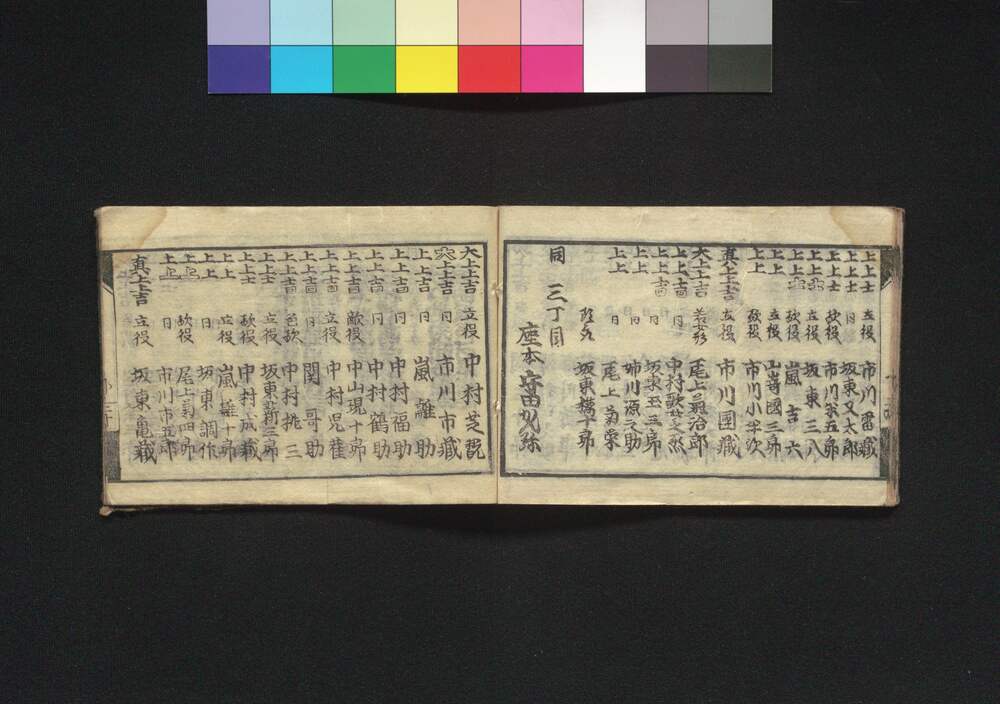 上上士 立役 市川雷蔵
上上士 同 坂東又太郎
上上士 敵役 市川宗五郎
上上 立役 坂東三八
上上 敵役 嵐吉六
上上 立役 山嵜國三郎
上上 敵役 市川小半次
真上上吉 立役 市川團蔵
大上上吉 若女形 尾上菊治郎
上上吉 同 中村歌
上上吉 同 坂東玉三郎
上上 同 姉川源之助
上上 同 尾上菊栄
坂東橘十郎
同 三丁目
座本
大上上吉 立役 中村芝翫
大上上吉 同 市川市蔵
上上吉 同 嵐離助
上上吉 同 中村福助
上上吉 同 中村鶴助
上上吉 敵役 中山現十郎
上上吉 立役 中村児雀
上上吉 同 関哥助
上上吉 色敵 中村桃三
上上士 立役 坂東新三郎
上上士 敵役 中村成蔵
上上 立役 嵐雛十郎
上上 同 坂東調作
上上 敵役 尾上菊四郎
上上 同 市川市五郎
真上上吉 立役 坂東亀蔵